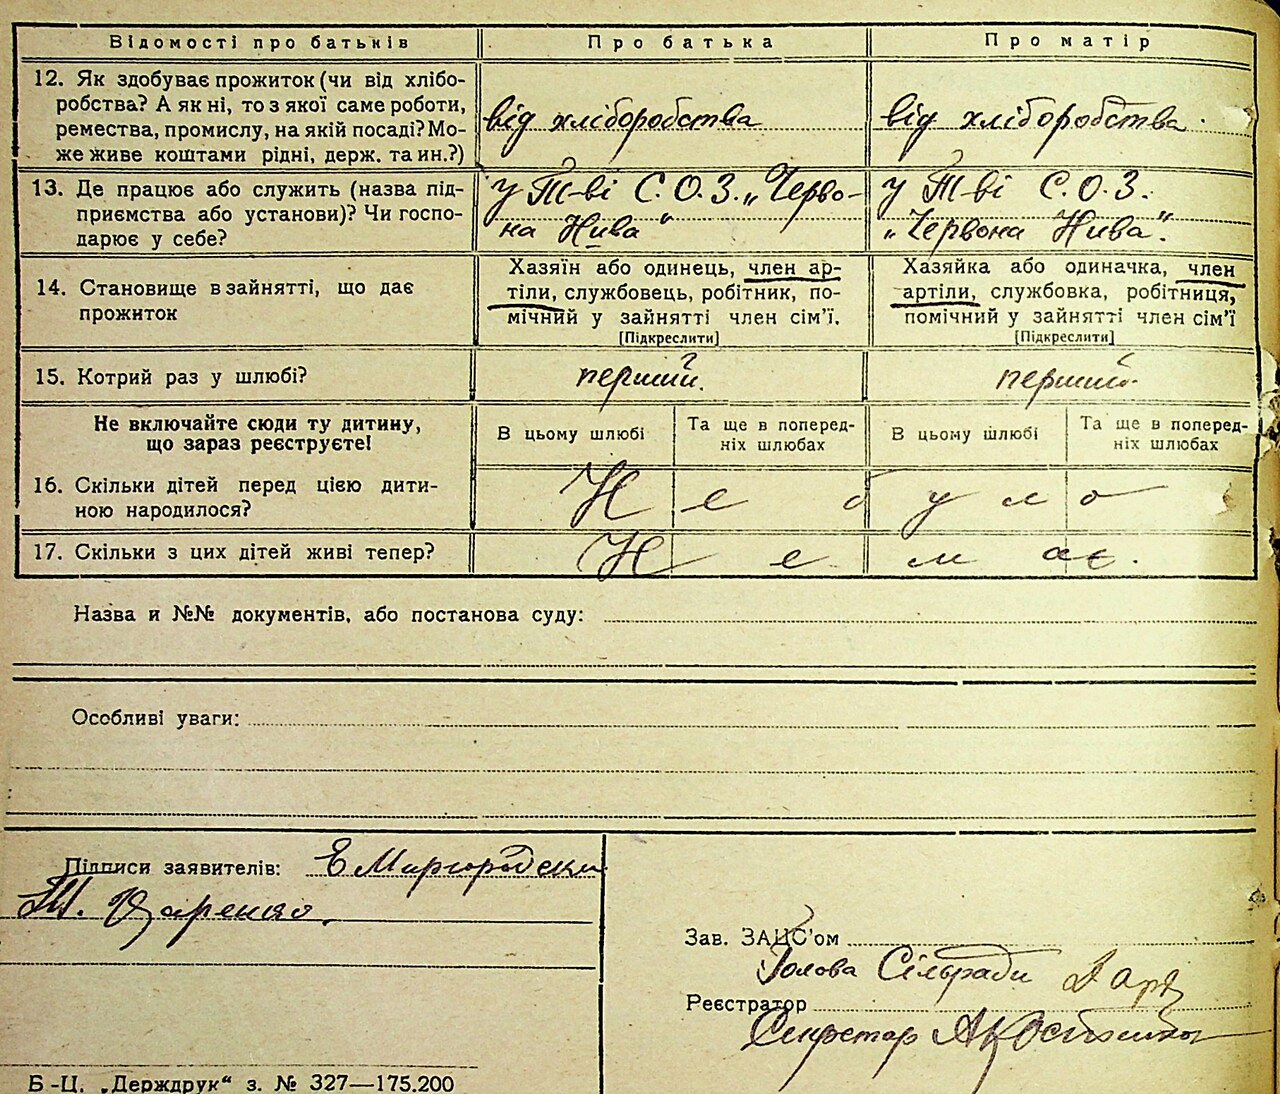 Відомості про батьків Про батька Про матір
12. Як здобуває прожиток (чи від хлібо-
робства? А як ні, то з якої саме роботи,
ремества, промислу, на якій посаді? Мо-
же живе коштами рідні, держ. та ин.?)
від хліборобства від хліборобства.
13. Де працює або служить (назва під-
приємства або установи)? Чи госпо-
дарює у себе?
у Т-ві С.О.З. „Черво-
на Нива“
у Т-ві С.О.З.
„Червона Нива“.
14. Становище в зайнятті, що дає
прожиток
Хазяїн або одинець, член ар-
тіли, службовець, робітник, по-
мічний у зайнятті член сім'ї.
[Підкреслити]
Хазяйка або одиначка, член
артіли, службовка, робітниця,
помічний у зайнятті член сім'ї
[Підкреслити]
15. Котрий раз у шлюбі? перший. перший.
Не включайте сюди ту дитину,
що зараз реєструєте!
В цьому шлюбі
Та ще в поперед-
ніх шлюбах
В цьому шлюбі
Та ще в поперед-
ніх шлюбах
16. Скільки дітей перед цією дити-
ною народилося?
Не було
17. Скільки з цих дітей живі тепер? Немає.
Назва и №№ документів, або постанова суду:
Особливі уваги:
Підписи заявителів:
Зав. ЗАЦС'ом
Голова Сільради
Реєстратор
Секретар
Б-Ц. „Держдрук“ з. № 327—175.200